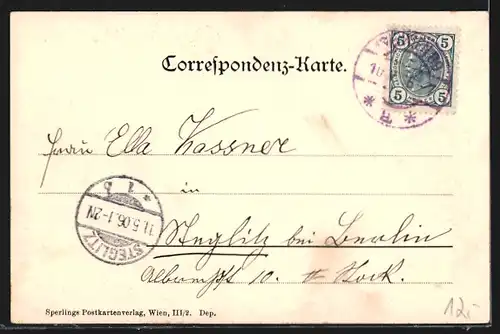 Correspondenz-Karte.
5 5
5 5
10
Frau Ella Kassner
in
Steglitz bei Berlin
Albrechtst 10. II Stock.
* 1 b
11.5.06.1-2N
STEGLITZ
Sperlings Postkartenverlag, Wien, III/2. Dep.
12.-